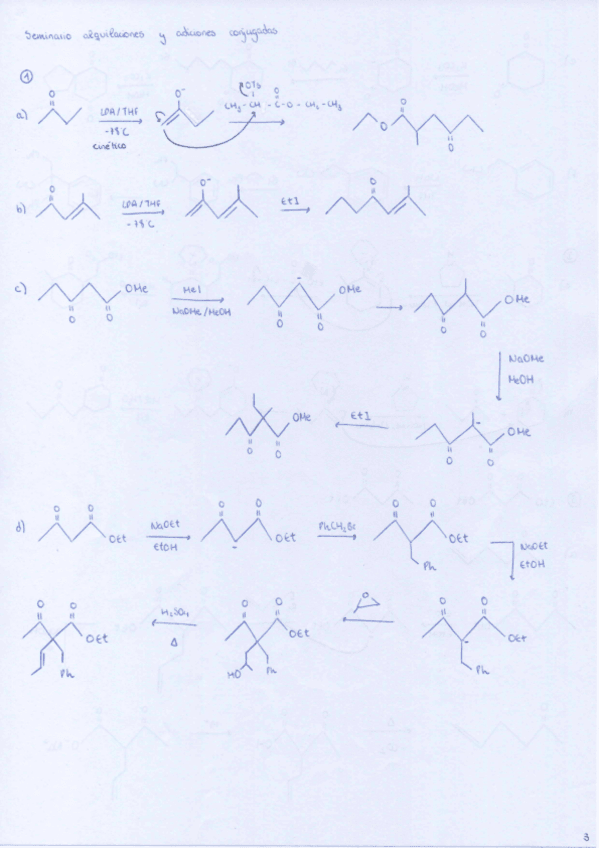 Seminario alquilaciones y adiciones conjugadas
1
a) O LDA/THF -78ºC cinético O⁻ OTs O CH₃-CH-C-O-CH₂-CH₃ O O O
b) O LDA/THF -78ºC O⁻ EtI O
c) O O OMe MeI NaOMe/MeOH - O O OMe O O OMe
NaOMe
MeOH
O O OMe EtI - O O OMe
d) O O OEt NaOEt EtOH O O - OEt PhCH₂Br O O OEt Ph
NaOEt
EtOH
O O OEt Ph H₂SO₄ Δ O O OEt HO Ph O O O OEt - Ph
3